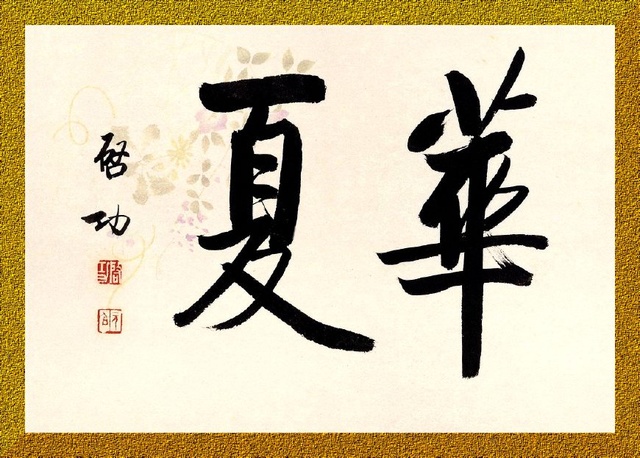 華夏
啓功